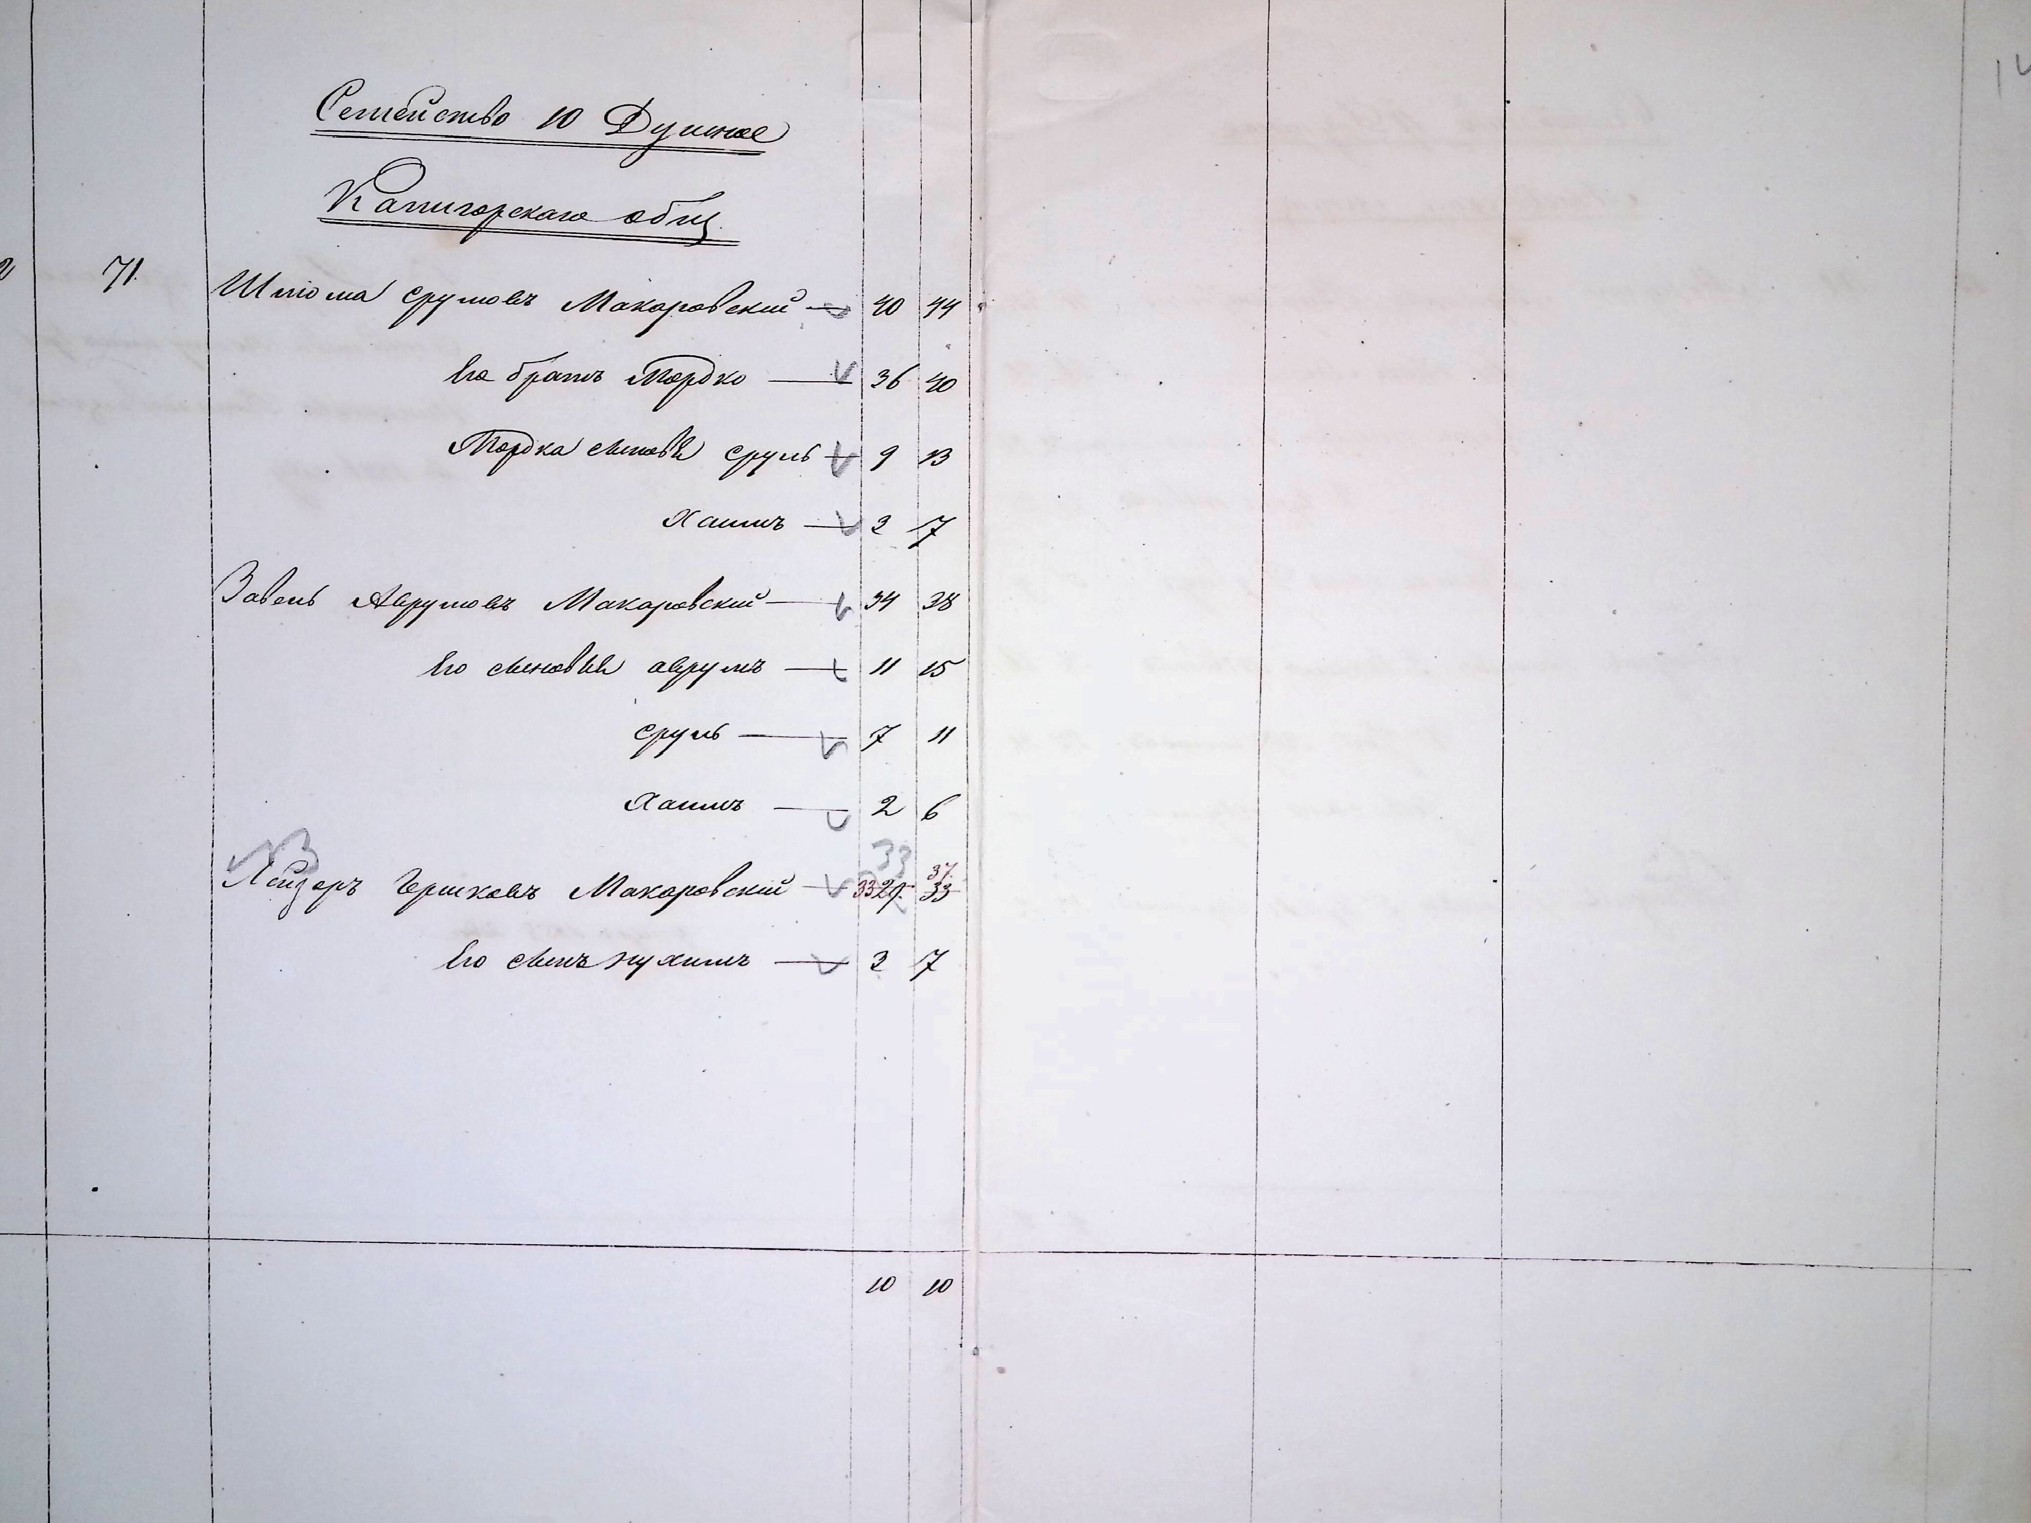 Семейство 10 Душное
Катигорскаго общ.
2 71. Шлiома Срумовъ Макаровский 40 44
Его братъ Мордко 36 40
Мордка сыновья Сруль 9 13
Хаимъ 3 7
Завель Аврумовъ Макаровский 34 38
Его сыновья Аврумъ 11 15
Сруль 7 11
Хаимъ 2 6
33
Лейзеръ Гершковъ Макаровскiй 33 29. 37. 33
Его сынъ Нухимъ 3 7
10 10